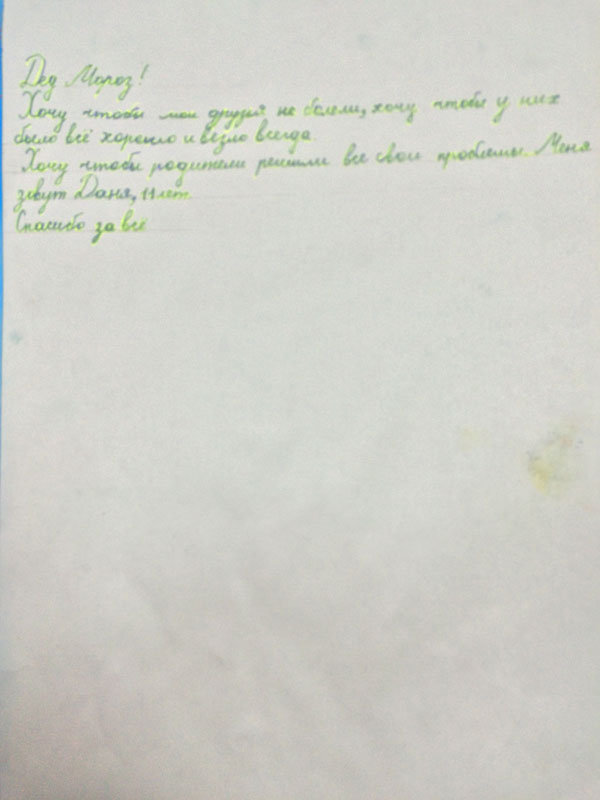 Дед Мороз!
Хочу чтобы мои друзья не болели, хочу чтобы у них
было всё хорошо и везло всегда.
Хочу чтобы родители решили все свои проблемы. Меня
зовут Даня, 11 лет.
Спасибо за всё